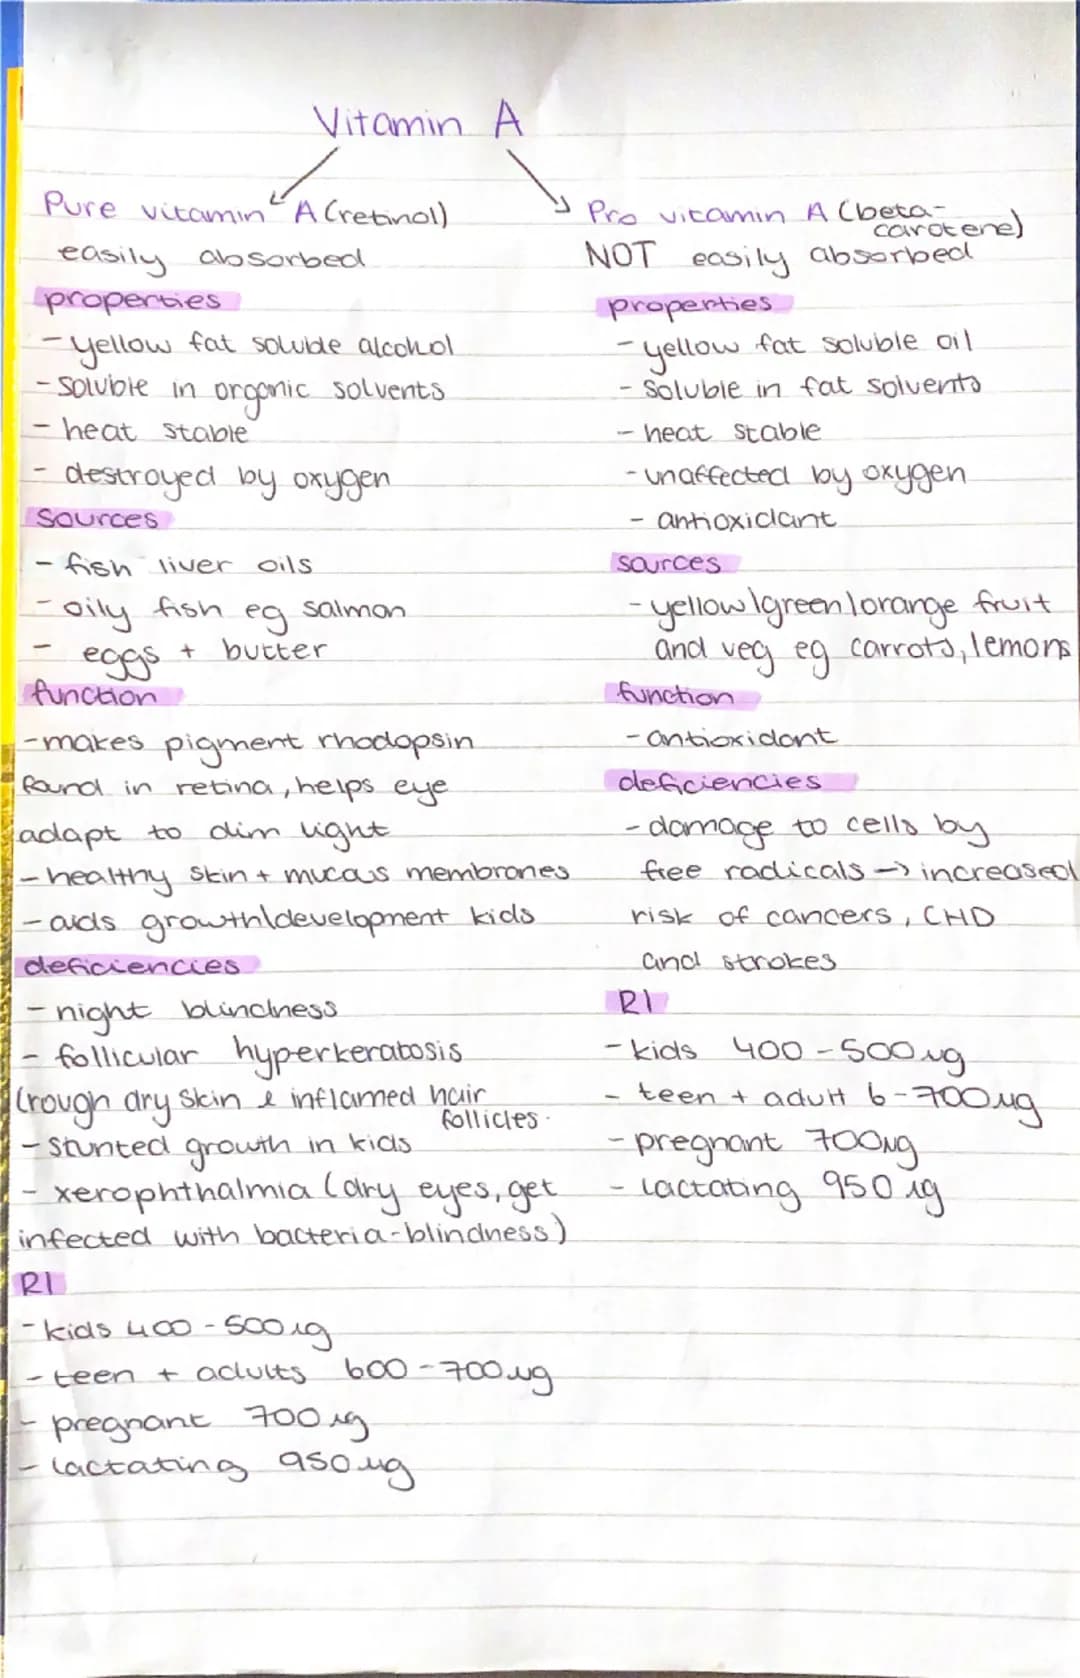 Vitamin A
Pure vitamin A (retinol)
easily absorbed
properties
- yellow fat soluble alcohol
- soluble in organic solvents
- heat stable
- destroyed by oxygen
sources
- fish liver oils
- oily fish eg salmon
- eggs + butter
function
- makes pigment rhodopsin
found in retina, helps eye
adapt to dim light
- healthy skin + mucous membranes
- aids growth\development kids
deficiencies
- night blindness
- follicular hyperkeratosis
(rough dry skin & inflamed hair
follicles.
- stunted growth in kids
- xerophthalmia (dry eyes, get
infected with bacteria - blindness)
RI
- kids 400 - 500 µg
- teen + adults 600 - 700 µg
- pregnant 700 µg
- lactating 950 µg
Pro vitamin A (beta-
carotene)
NOT easily absorbed
properties
- yellow fat soluble oil
- soluble in fat solvents
- heat stable
- unaffected by oxygen
- antioxidant
sources
- yellow\green\orange fruit
and veg eg carrots, lemons
function
- antioxidant
deficiencies
- damage to cells by
free radicals → increased
risk of cancers, CHD
and strokes
RI
- kids 400 - 500 µg
- teen + adult 6 - 700 µg
- pregnant 700 µg
- lactating 950 µg